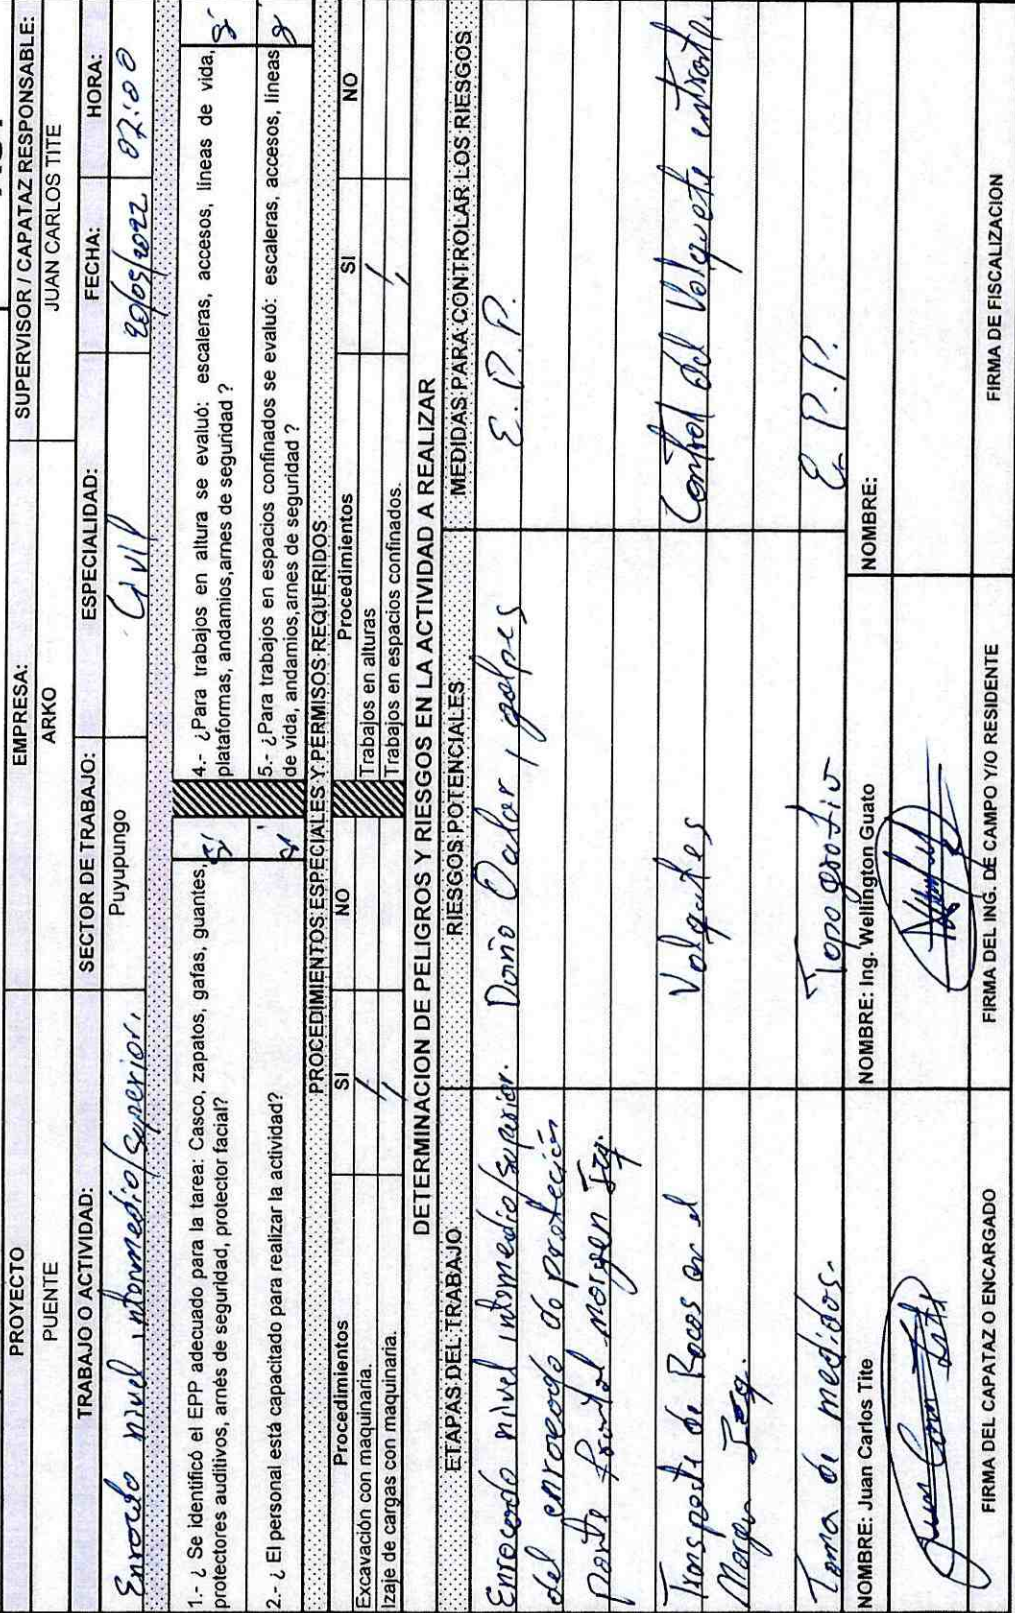 PROYECTO
EMPRESA:
SUPERVISOR / CAPATAZ RESPONSABLE:
PUENTE
ARKO
JUAN CARLOS TITE
TRABAJO O ACTIVIDAD:
SECTOR DE TRABAJO:
ESPECIALIDAD:
FECHA:
HORA:
Enrocado nivel intermedio/superior.
Puyupungo
Civil
20/05/2022
02:00
1.- ¿ Se identificó el EPP adecuado para la tarea: Casco, zapatos, gafas, guantes,
protectores auditivos, arnés de seguridad, protector facial?
Si
4.- ¿Para trabajos en altura se evaluó: escaleras, accesos, lineas de vida,
plataformas, andamios,arnes de seguridad ?
Si
2.- ¿ El personal está capacitado para realizar la actividad?
Si
5.- ¿Para trabajos en espacios confinados se evaluó: escaleras, accesos, lineas
de vida, andamios,arnes de seguridad ?
PROCEDIMIENTOS ESPECIALES Y PERMISOS REQUERIDOS
Procedimientos
SI
NO
Procedimientos
SI
NO
Excavación con maquinaria.
/
Trabajos en alturas
/
Izaje de cargas con maquinaria.
/
Trabajos en espacios confinados.
/
DETERMINACION DE PELIGROS Y RIESGOS EN LA ACTIVIDAD A REALIZAR
ETAPAS DEL TRABAJO
RIESGOS POTENCIALES
MEDIDAS PARA CONTROLAR LOS RIESGOS
Enrocado nivel intermedio/superior.
Daño Calor, golpes
E.P.P.
del enrocado de protección
parte frontal margen Izq.
Transporte de Rocas en el
Volquetes
Control del Volquete entrada.
Margen Izq.
Toma de medidas.
Topografia
E.P.P.
NOMBRE: Juan Carlos Tite
NOMBRE: Ing. Wellington Guato
NOMBRE:
FIRMA DEL CAPATAZ O ENCARGADO
FIRMA DEL ING. DE CAMPO Y/O RESIDENTE
FIRMA DE FISCALIZACION